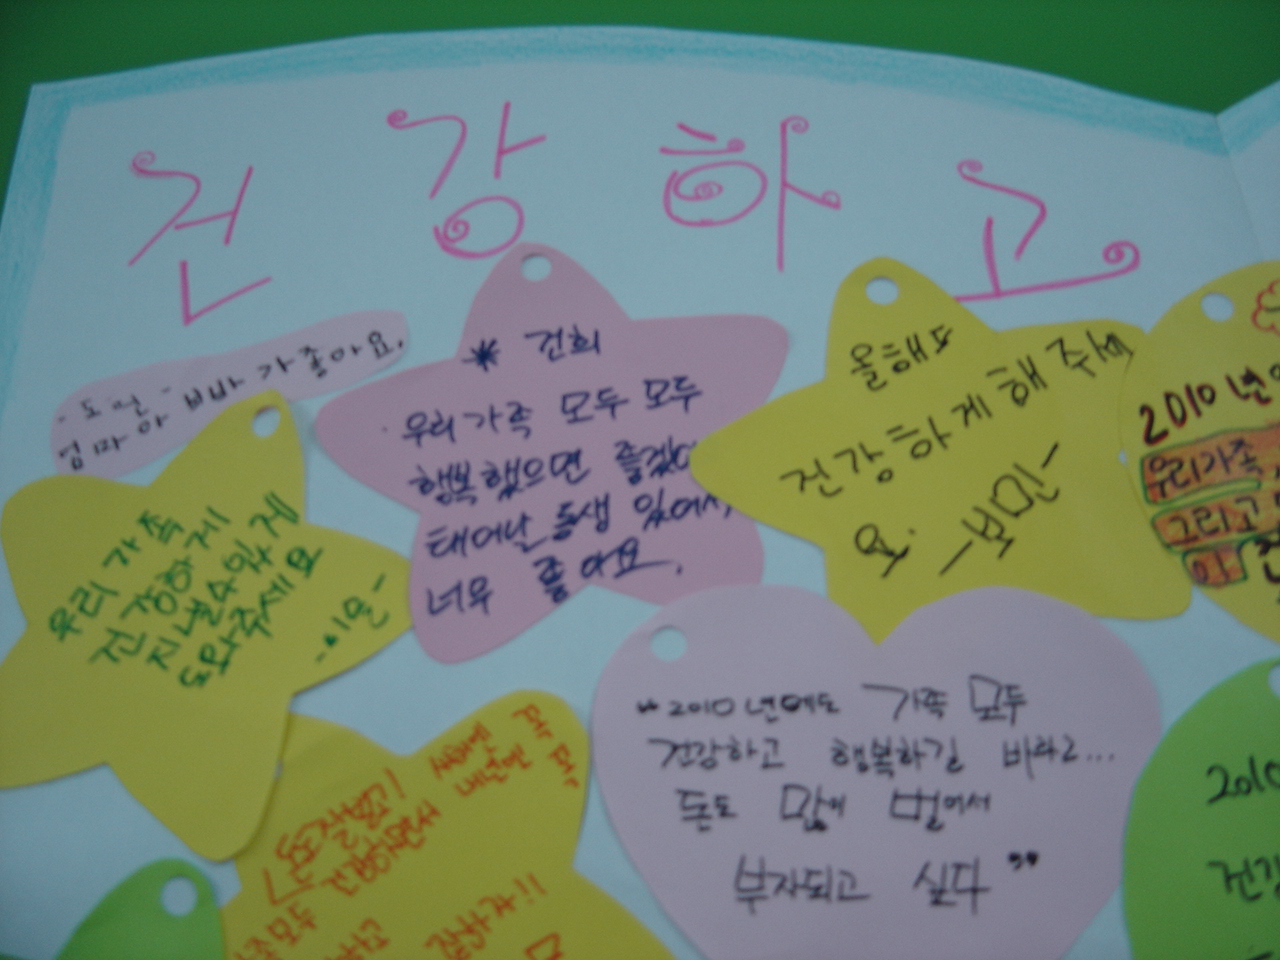 건강하고
엄마 아빠가 좋아요.
* 건희
우리가족 모두 모두
행복했으면 좋겠어
태어날 동생 있어서,
너무 좋아요.
올해도
건강하게해주세
요.
-보민-
2010년
우리가족
그리고
우리 가족
건강하게
지낼수있게
도와주세요
"2010년에도 가족 모두
건강하고 행복하길 바라고...
돈도 많이 벌어서
부자되고 싶다"
돈 잘벌고!
건강하면서
족모두
잘하자!!
하고
2010
건강